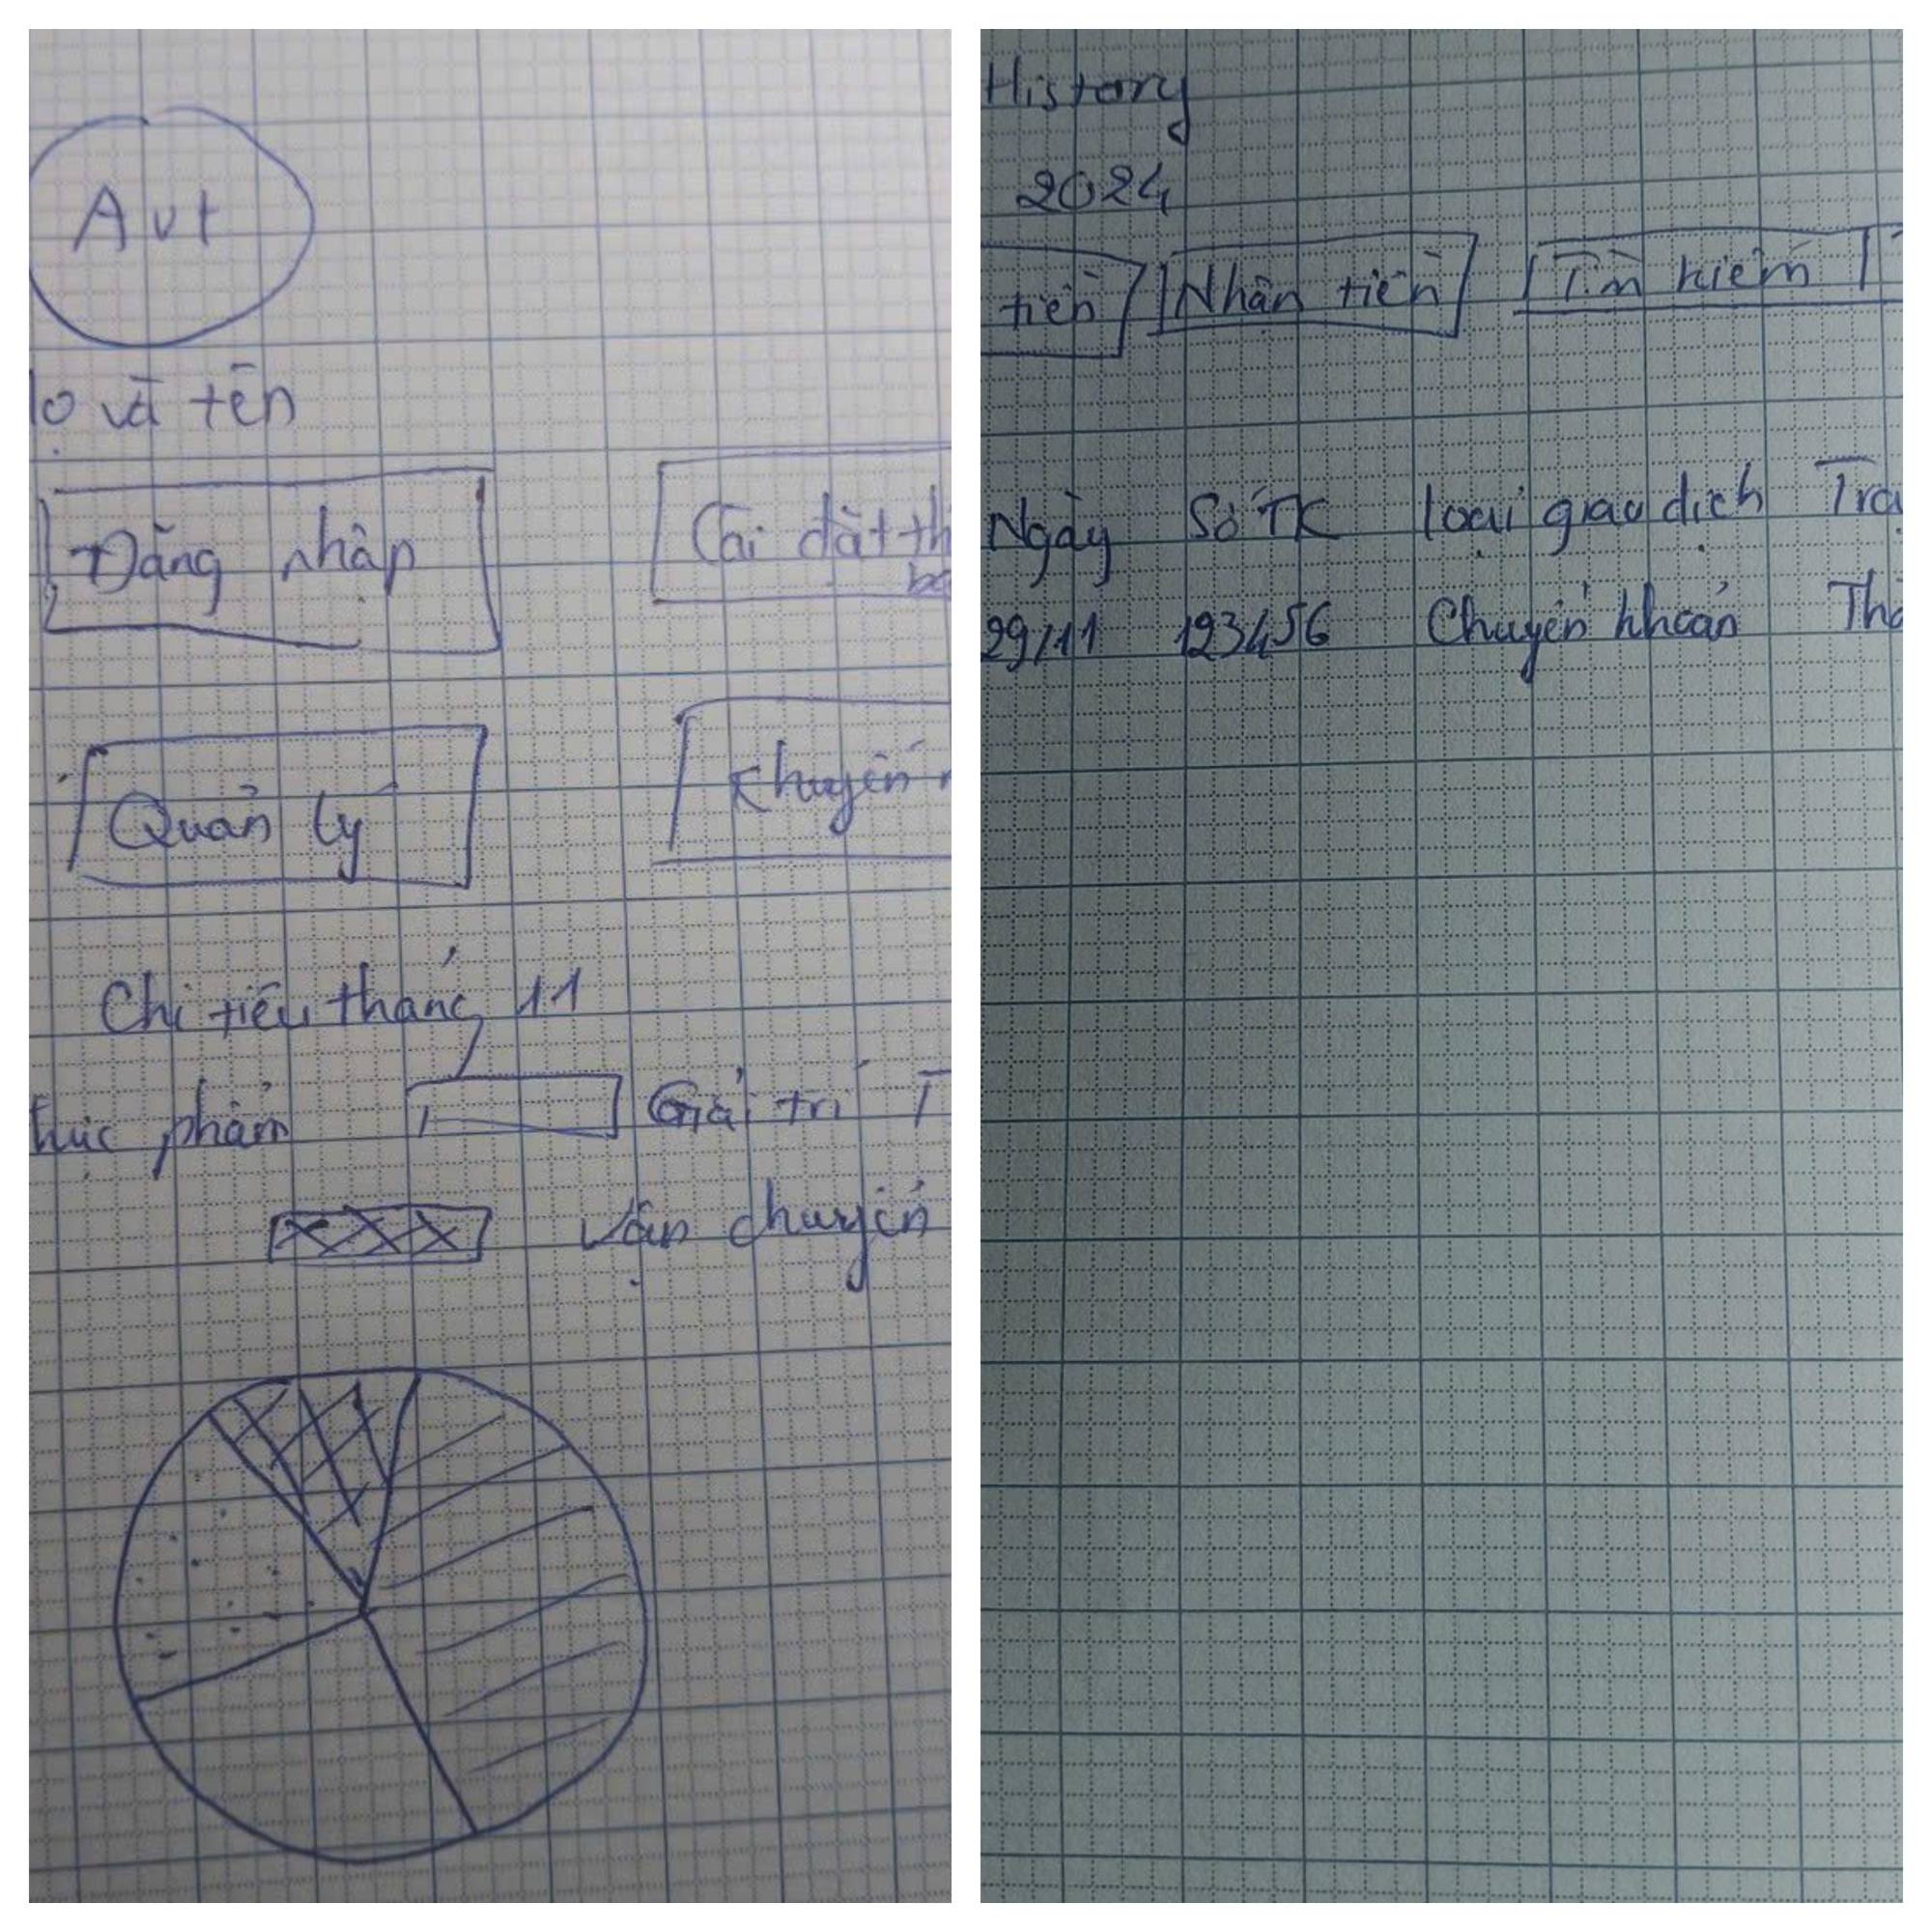 Avt
và tên
Đăng nhập
Cài đặt
Quản lý
Khuyến
Chi tiêu tháng 11
thực phẩm Giải trí
Vận chuyển
History
2024
tiền Nhận tiền Tìm kiếm
Ngày Số TK loại giao dịch
29/11 123456 Chuyển khoản